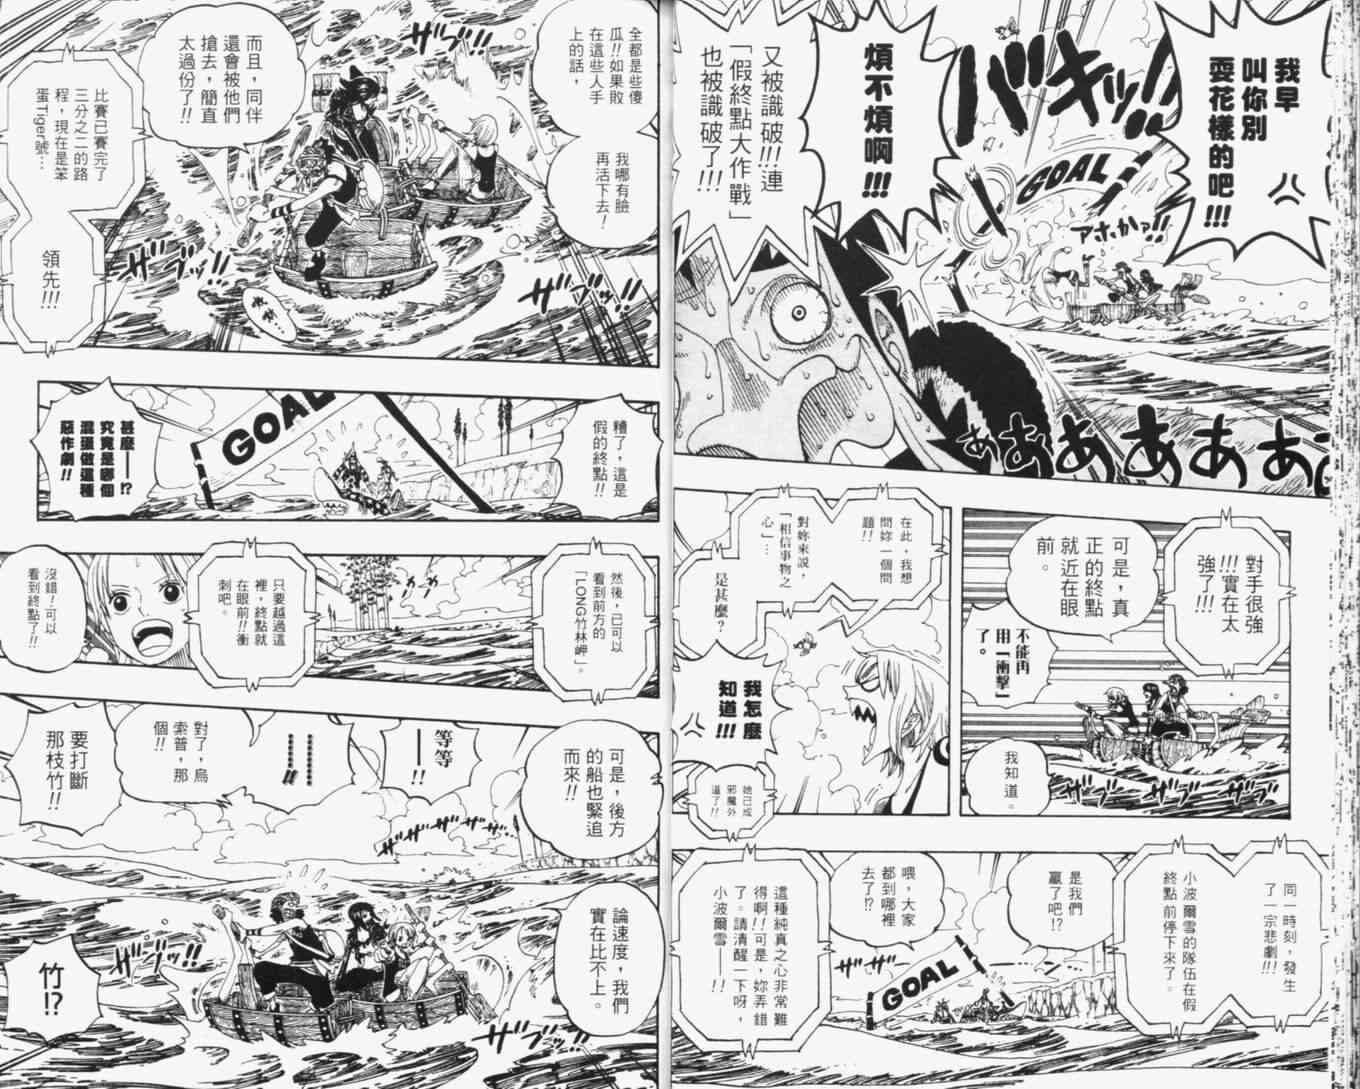 我早
叫你別
耍花樣的吧!!!
バキッ!!
GOAL
アホかっ!!
煩不煩啊!!!
又被識破!!!連
「假終點大作戰」
也被識破了!!!
ああああああ
對手很強
!!!實在太
強了!!!
可是，真
正的終點
就近在眼
前。
不能再
用「衝擊」
了。
我知道。
ザブ ザブッ ザブッ
在此，我想
問妳一個問
題!!
對妳來說，
「相信事物之
心」…
是甚麼?
我怎麼
知道!!!
她已成
邪魔外
道了!!
同一時刻，發生
了一宗悲劇!!!
小波爾雪的隊伍在假
終點前停下來了。
是我們
贏了吧!?
喂，大家
都到哪裡
去了!?
GOAL
ザザッ
這種純真之心非常難
得啊!!可是，妳弄錯
了。請清醒一下呀，
小波爾雪——!!
全都是些傻
瓜!!如果敗
在這些人手
上的話，
我哪有臉
再活下去!
而且，同伴
還會被他們
搶去，簡直
太過份了!!
比賽已賽完了
三分之二的路
程，現在是笨
蛋Tiger號…
領先!!!
ザブッ!
ザブッ!!
ザブッ!!
糟了，這是
假的終點!!
GOAL
甚麼——!?
究竟是哪個
混蛋做這種
惡作劇!!
然後，已可以
看到前方的
「LONG竹林岬」。
只要越過這
裡，終點就
在眼前!!衝
刺吧。
沒錯!可以
看到終點了!!
可是，後方
的船也緊追
而來!!
等等
——!!
………!!
對了，烏
索普，那
個!!
要打斷
那枝竹!!
ザザザザッ
論速度，我們
實在比不上。
竹!?
ザザッ!!
ザザッ!!